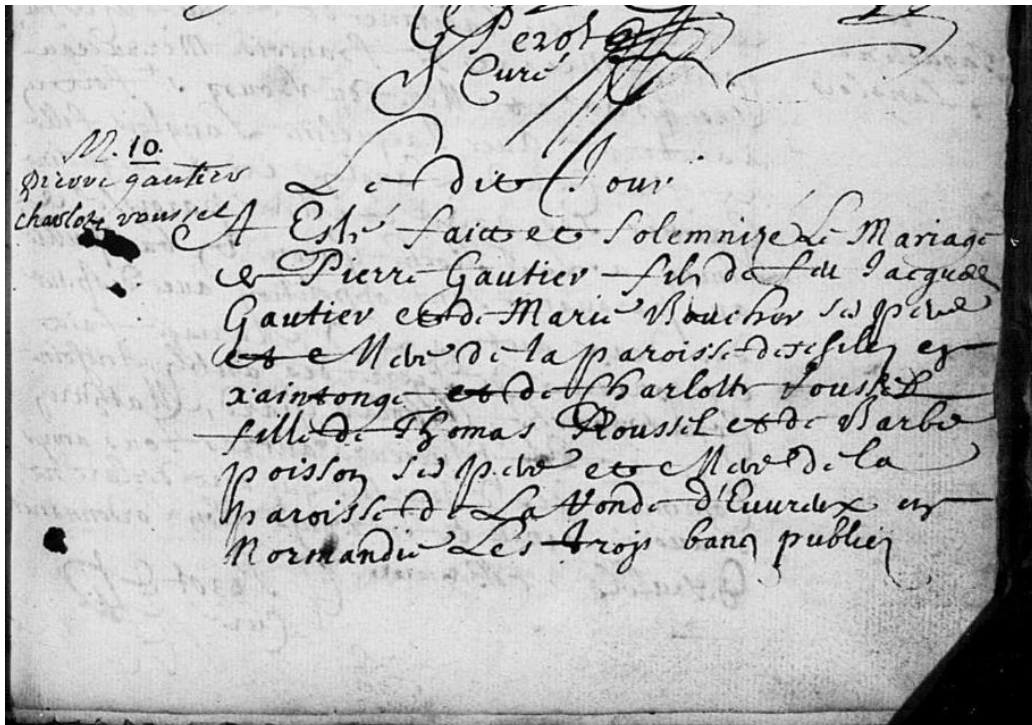 G Perot
Curé
M. 10.
pierre gautier
charlotte roussel
Le dit Jour
A Esté faict et solemnizé Le Mariage
de Pierre Gautier fils de feu Jacques
Gautier et de Marie Boucher ses pere
et Mere de la paroisse en
xaintonge et de Charlotte roussel
fille de Thomas Roussel et de Barbe
poisson ses pere et Mere de la
paroisse de La ronde d'Euureux en
Normandie Les trois bans publiez